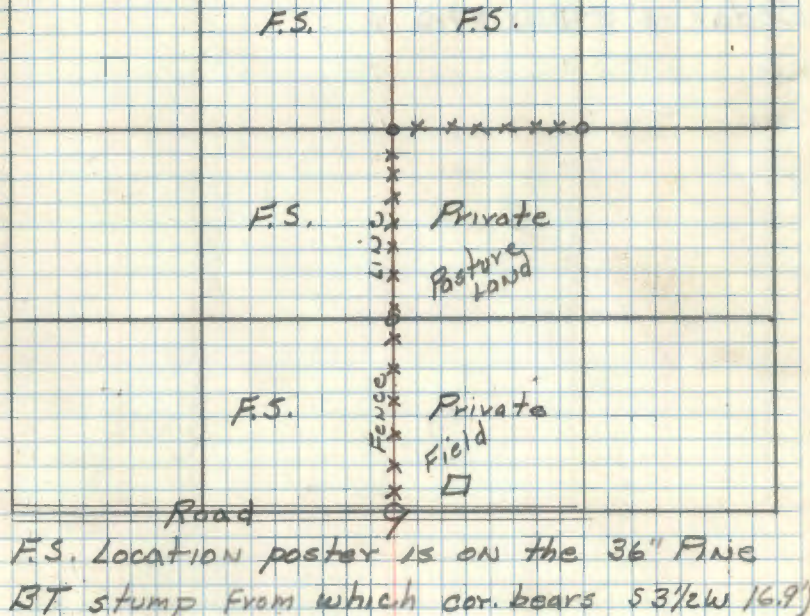 F.S. F.S.
F.S. Private
Pasture
LAND
F.S. Private
Field
Fence LINE
Road
F.S. Location poster is on the 36" Pine
BT stump from which cor. bears S 3½ W 16.9'